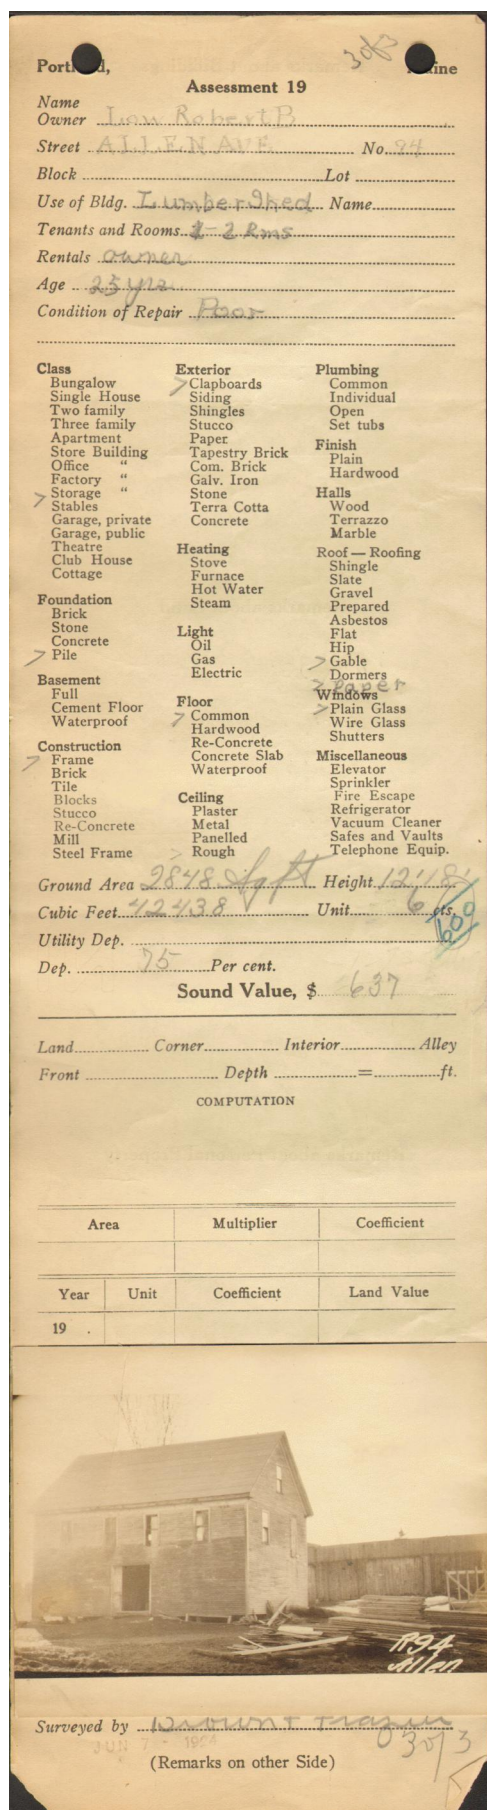 3 of 3
Portland, Maine
Assessment 19
Name
Owner Low Robert B
Street ALLEN AVE No. 94
Block Lot
Use of Bldg. Lumber Shed Name
Tenants and Rooms 1-2 Rms
Rentals owner
Age 25 yrs
Condition of Repair Poor
Class
Bungalow
Single House
Two family
Three family
Apartment
Store Building
Office "
Factory "
Storage "
> Stables
Garage, private
Garage, public
Theatre
Club House
Cottage
Foundation
Brick
Stone
Concrete
> Pile
Basement
Full
Cement Floor
Waterproof
Construction
> Frame
Brick
Tile
Blocks
Stucco
Re-Concrete
Mill
Steel Frame
Exterior
> Clapboards
Siding
Shingles
Stucco
Paper
Tapestry Brick
Com. Brick
Galv. Iron
Stone
Terra Cotta
Concrete
Heating
Stove
Furnace
Hot Water
Steam
Light
Oil
Gas
Electric
Floor
> Common
Hardwood
Re-Concrete
Concrete Slab
Waterproof
Ceiling
Plaster
Metal
Panelled
> Rough
Plumbing
Common
Individual
Open
Set tubs
Finish
Plain
Hardwood
Halls
Wood
Terrazzo
Marble
Roof — Roofing
Shingle
Slate
Gravel
Prepared
Asbestos
Flat
Hip
> Gable
Dormers
> Paper
Windows
> Plain Glass
Wire Glass
Shutters
Miscellaneous
Elevator
Sprinkler
Fire Escape
Refrigerator
Vacuum Cleaner
Safes and Vaults
Telephone Equip.
Ground Area 2848 Sq ft Height 12' 18'
Cubic Feet 42438 Unit 6 cts.
600
Utility Dep.
Dep. 75 Per cent.
Sound Value, $ 637
Land Corner Interior Alley
Front Depth = ft.
COMPUTATION
Area Multiplier Coefficient
Year Unit Coefficient Land Value
19 .
R94
Allen
Surveyed by Brown + Frazier
JUN 7 - 1924
O 3 of 3
(Remarks on other Side)